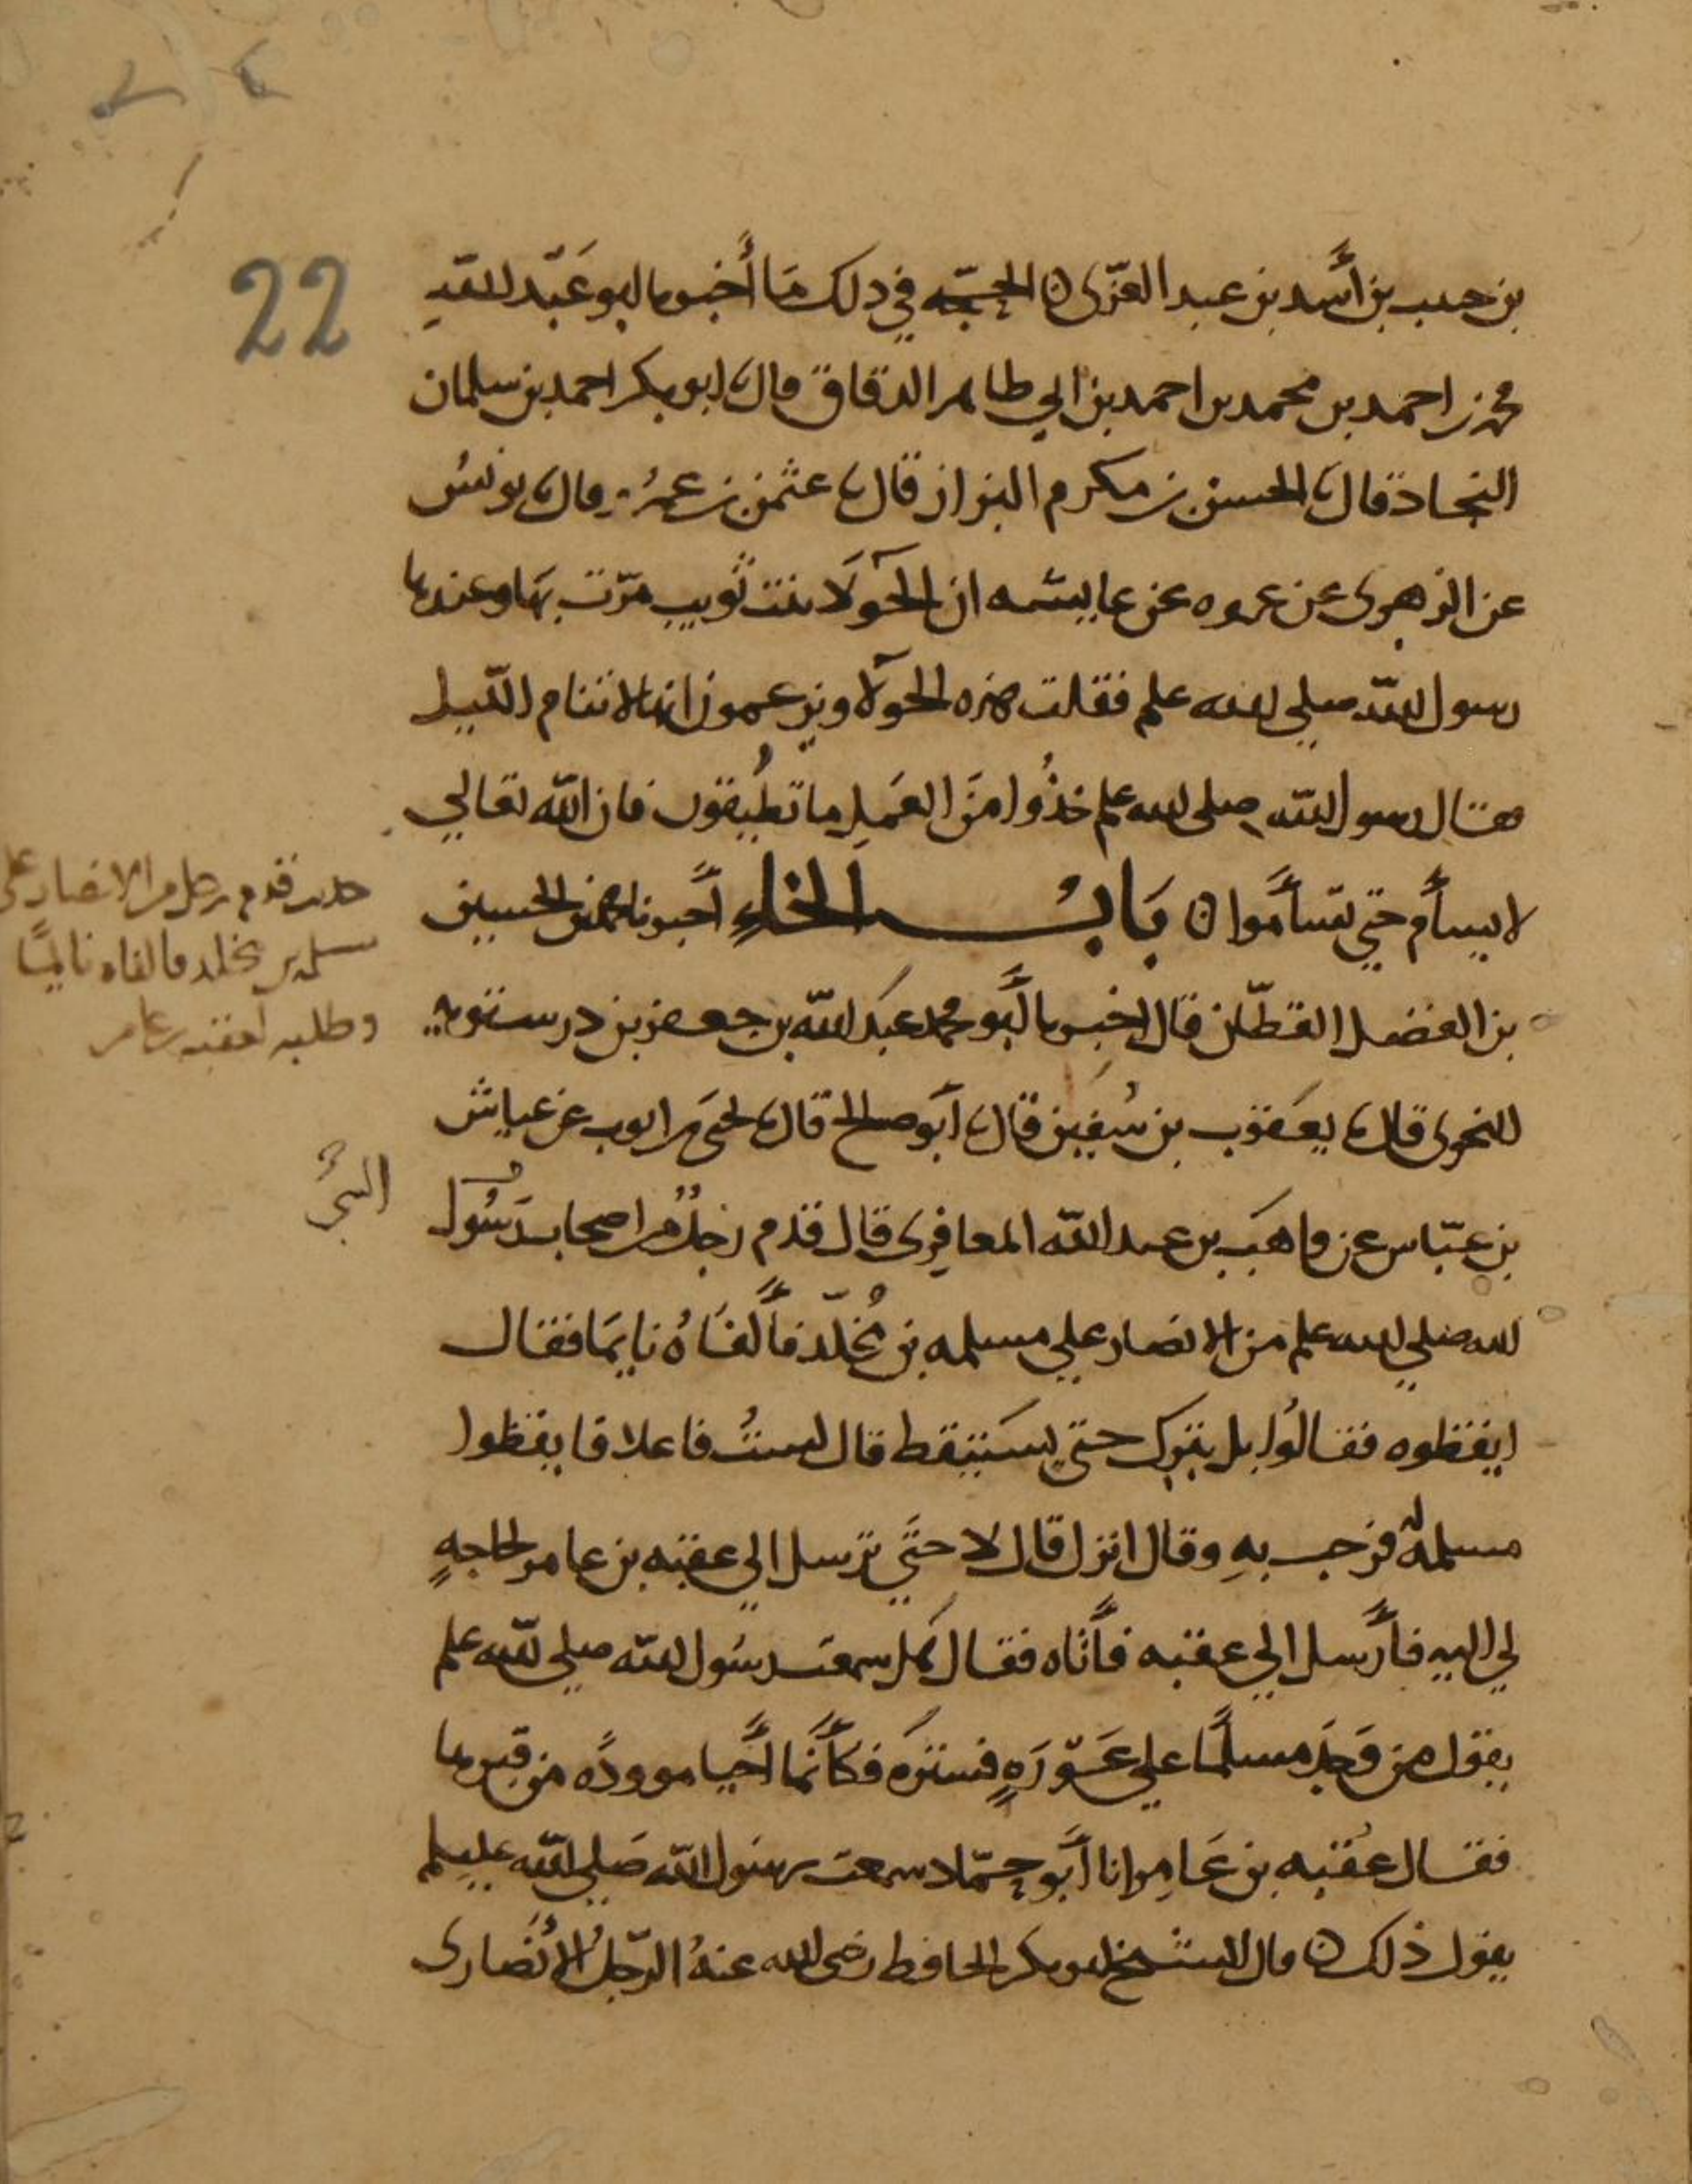 22
بن حبيب بن أسد بن عبد العزى ن الحجّه في ذلك مَا أخبرنا ابو عَبْد اللهِ
محمد بن احمد بن محمد بن احمد بن ابي طاهر الدقاق قال ابو بكر احمد بن سلمان
النجاد قال الحسن بن مكرم البزاز قال عثمن بن عمر قال يونس
عن الزهرى عن عروه عن عايشه ان الحَولآ بنت تُويب مرّت بهَا وعندها
رسول الله صلى الله علم فقلت هذه الحَولآ ويزعمون انها لا تنام الليل
فقال رسول الله صلى الله علم خذُوا منَ العَمَلِ ما تُطيقون فان الله تعالي
لا يسأم حتي تسأموا ن بَابُ الخاءِ أخبرنا محمد بن الحسين
بن الفضل القطّان قال اخبرنا أبو محمد عبَد الله بن جعفر بن درستويه
النحوى قال يعقوب بن سُفين قال أبو صالح قال يحيَى بن ايوب عن عياش
بن عبّاس عن واهَب بن عبد الله المعافرى قال قدم رجلٌ من اصحاب رَسُول
الله صلي الله علم من الانصار علي مسلمه بن مُخلّد فألفَاهُ نايمَا فقال
ايقظوه فقالُوا بل يترك حتي يسَتيقظ قال لستُ فاعلا فايقظوا
مسلمة فرحب بهِ وقال انزل قال لا حتَّي ترسل الي عقبه بن عامر لحاجهٍ
لي اليه فأرسل الي عقبه فأتاه فقال هَل سمعت رسُول الله صلي الله علم
يقول من وَجَد مسلمًا علي عَوْرَهٍ فستَرَه فكأنَّما أَحيا موودًه من قبرها
فقال عُقبه بن عَامِر انا أبو حمّاد سمعت رسول الله صَلي الله عليلم
يقول ذلك ن قال الشيخ ابو بكر الحافظ رضى الله عنهُ الرّجلُ الأنصارى
حديث قدم رجل من الانصار على
مسلمه بن مخلد فالفاه نايمًا
وطلبه لعقبه بن عامر